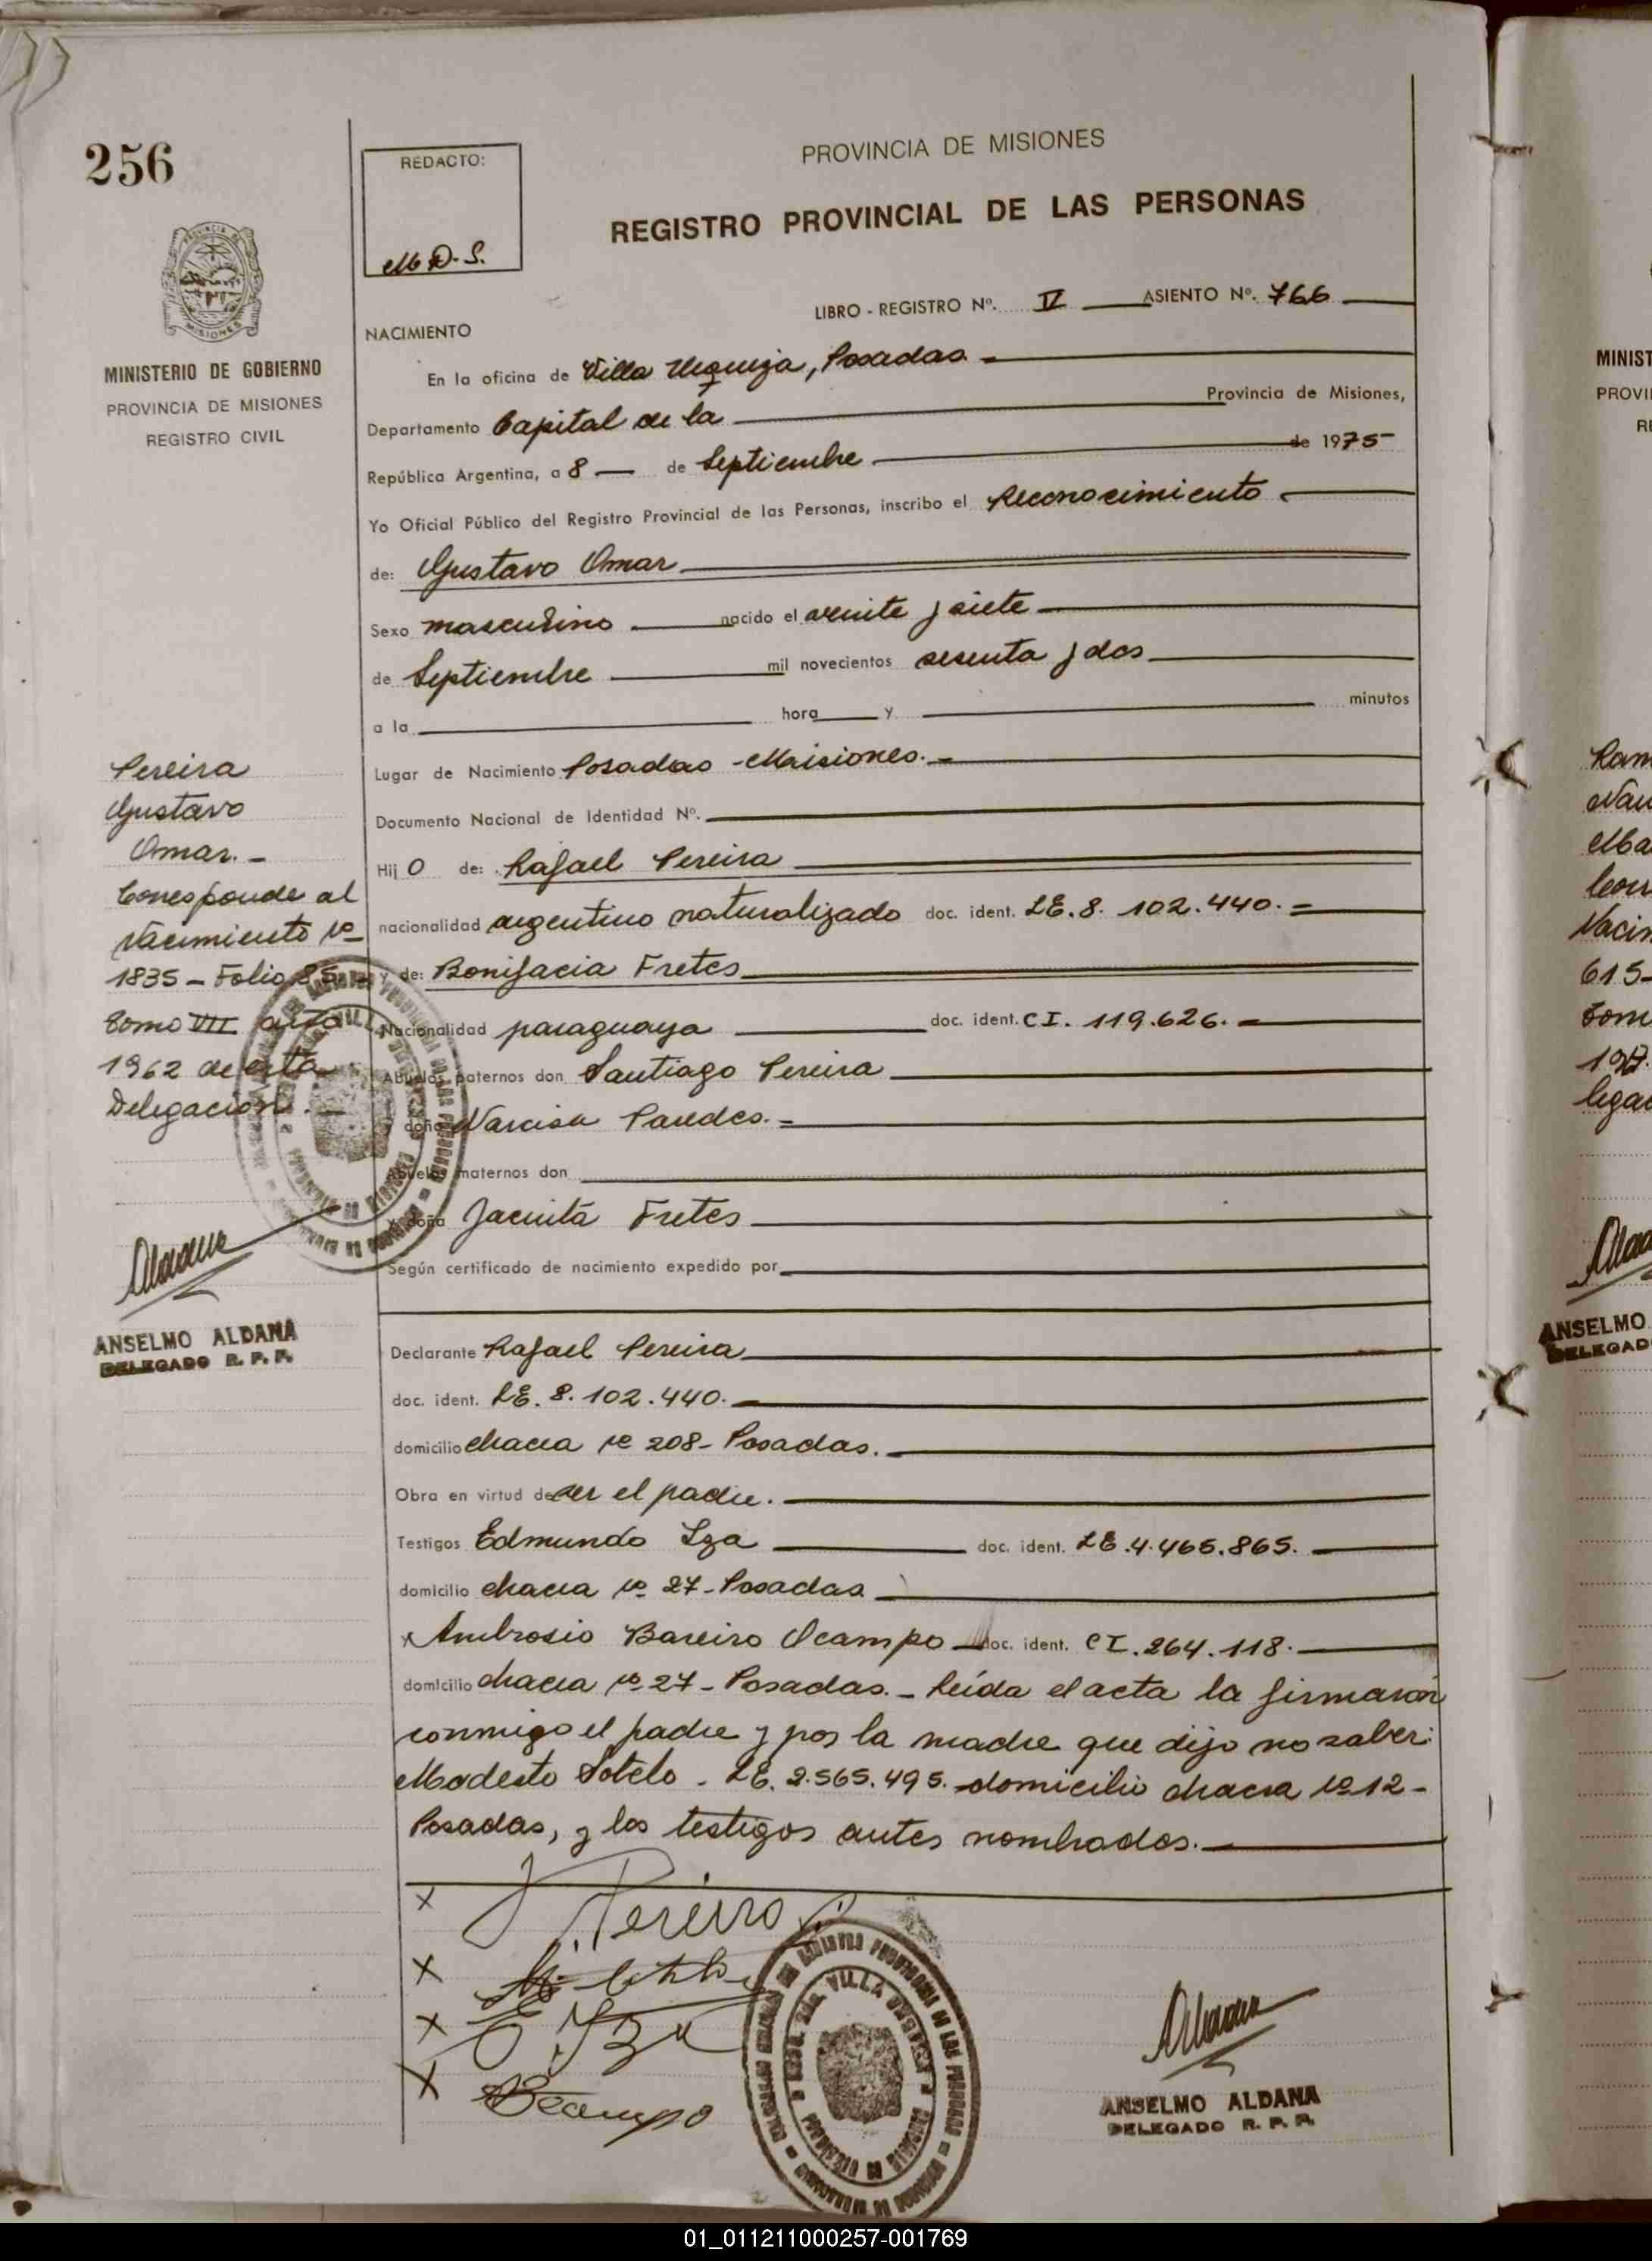 256
REDACTO:
M.D.S.
PROVINCIA DE MISIONES
REGISTRO PROVINCIAL DE LAS PERSONAS
MISIONES
MINISTERIO DE GOBIERNO
PROVINCIA DE MISIONES
REGISTRO CIVIL
LIBRO - REGISTRO Nº. IV ASIENTO Nº. 766
NACIMIENTO
En la oficina de Villa Urquiza, Posadas.-
Departamento Capital de la Provincia de Misiones,
República Argentina, a 8 de Septiembre de 1975
Yo Oficial Público del Registro Provincial de las Personas, inscribo el Reconocimiento
de: Gustavo Omar
Sexo masculino nacido el veinte y siete
de Septiembre mil novecientos sesenta y dos
a la hora y minutos
Lugar de Nacimiento Posadas - Misiones.-
Documento Nacional de Identidad Nº.
Hij o de: Rafael Pereira
nacionalidad argentino naturalizado doc. ident. LE. 8. 102.440.=
y de: Bonifacia Fretes
Nacionalidad paraguaya doc. ident. CI. 119.626.-
Abuelos paternos don Santiago Pereira
y doña Narcisa Paredes.-
Abuelos maternos don
y doña Jacinta Fretes
Según certificado de nacimiento expedido por
Declarante Rafael Pereira
doc. ident. LE. 8. 102.440.-
domicilio chacra Nº 208- Posadas.-
Obra en virtud de ser el padre.
Testigos Edmundo Iza doc. ident. LE. 4.465.865.
domicilio chacra Nº 27- Posadas
y Ambrosio Bareiro Ocampo doc. ident. CI. 264.118.
domicilio chacra Nº 27- Posadas.- Leída el acta la firmaron
conmigo el padre y por la madre que dijo no saber:
Modesto Sotelo - LE. 2.565.495. domicilio chacra Nº 12-
Posadas, y los testigos antes nombrados.
Pereira
Gustavo
Omar.-
Corresponde al
Nacimiento Nº
1835 - Folio 85
Tomo VII año
1962 de esta
Delegación.-
Aldana
ANSELMO ALDANA
DELEGADO R. P. P.
x Pereira
x
x E Iza
x BOcampo
VILLA URQUIZA
Aldana
ANSELMO ALDANA
DELEGADO R. P. P.
MINIST
PROVI
RE
Nacim
615-
Tom
ANSELMO
DELEGAD
01_011211000257-001769